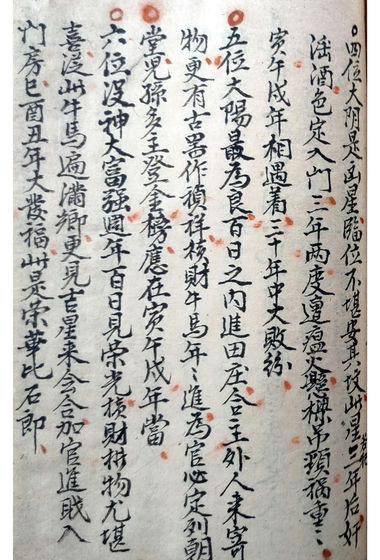 四位大阴是凶星临位不堪安其坟此星三年后奸
淫酒色定入门三年两度遭瘟火悬樑吊頸祸重〻
寅午戌年相遇着三十年中大敗紛
五位大陽最為良百日之内進田庄合主外人来寄
物更有古器作禎祥横財牛馬年〻進為官必定列朝
堂児孫多主登金榜應在寅午戌年當
六位没神大富強週年百日見栄光横財拱物尤堪
喜没此牛馬遍满鄉更見吉星来合合加官進戝入
门房巳酉丑年大發福此是荣華比石郎